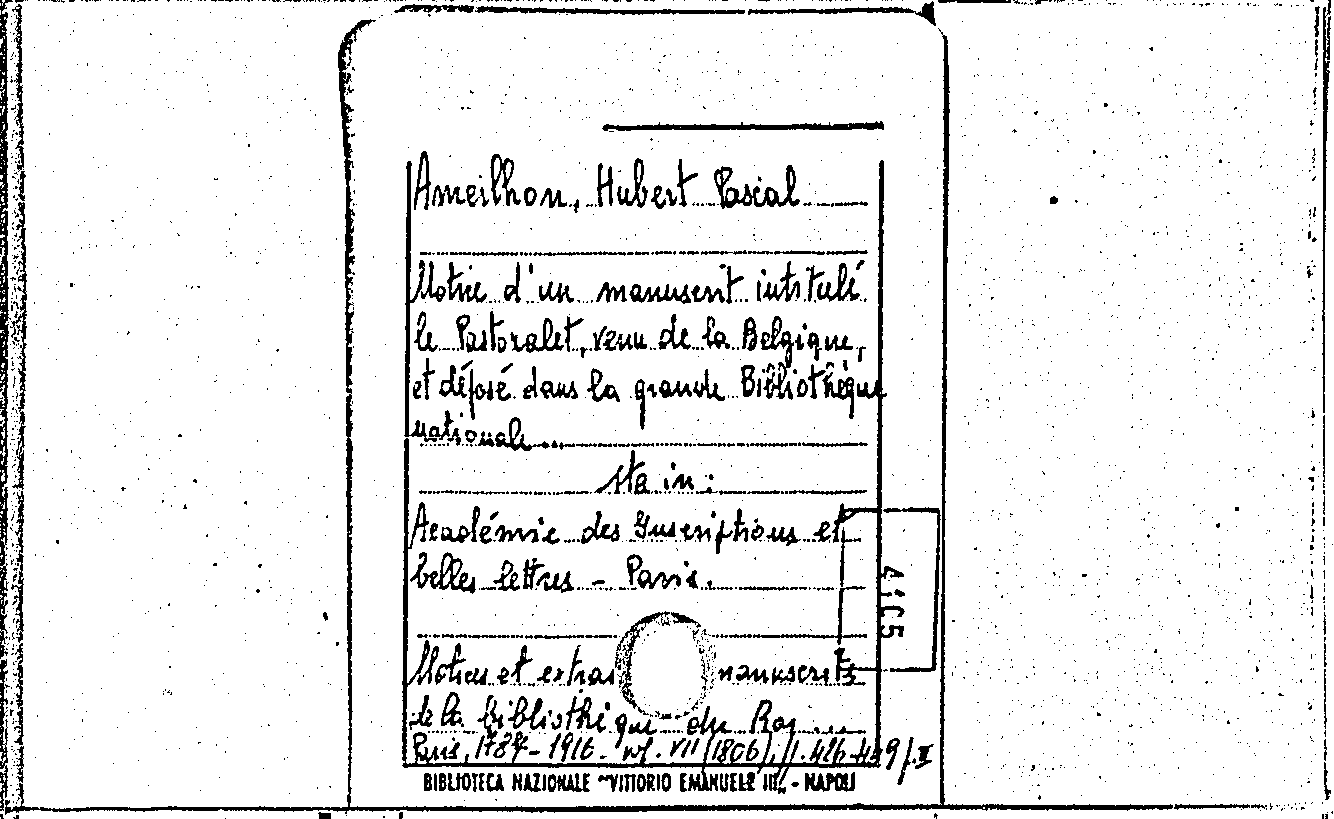 Ameilhon, Hubert Pascal
Notice d'un manuscrit intitulé
le Pastoralet, venu de la Belgique,
et déposé dans la grande Bibliothèque
nationale...
sta in:
Académie des Inscriptions et
belles lettres - Paris.
4105
Notices et extrai manuscrits
de la bibliothèque du Roi ...
Paris, 1787-1916. vol. VII (1806),
BIBLIOTECA NAZIONALE "VITTORIO EMANUELE III" - NAPOLI